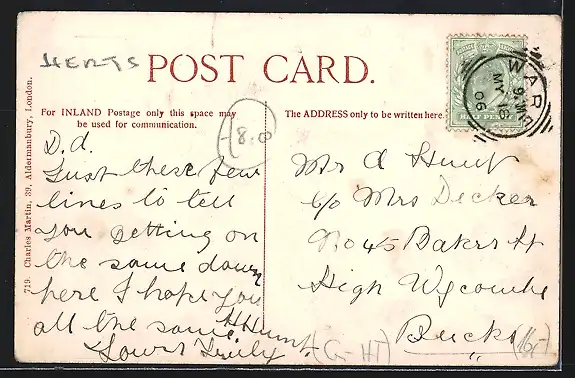 HERTS
POST CARD.
For INLAND Postage only this space may
be used for communication.
The ADDRESS only to be written here.
719. Charles Martin, 39, Aldermanbury, London.
HALF PENNY
WAR
MY 1
06
(8.0
D.d.
Just these few
lines to tell
you getting on
the same down
here I hope you
all the same.
H Hunt
Yours Truly
Mr A Hunt
c/o Mrs Decker
No 45 Bakers St
High Wycombe
Bucks
(G-HT)
(16-)